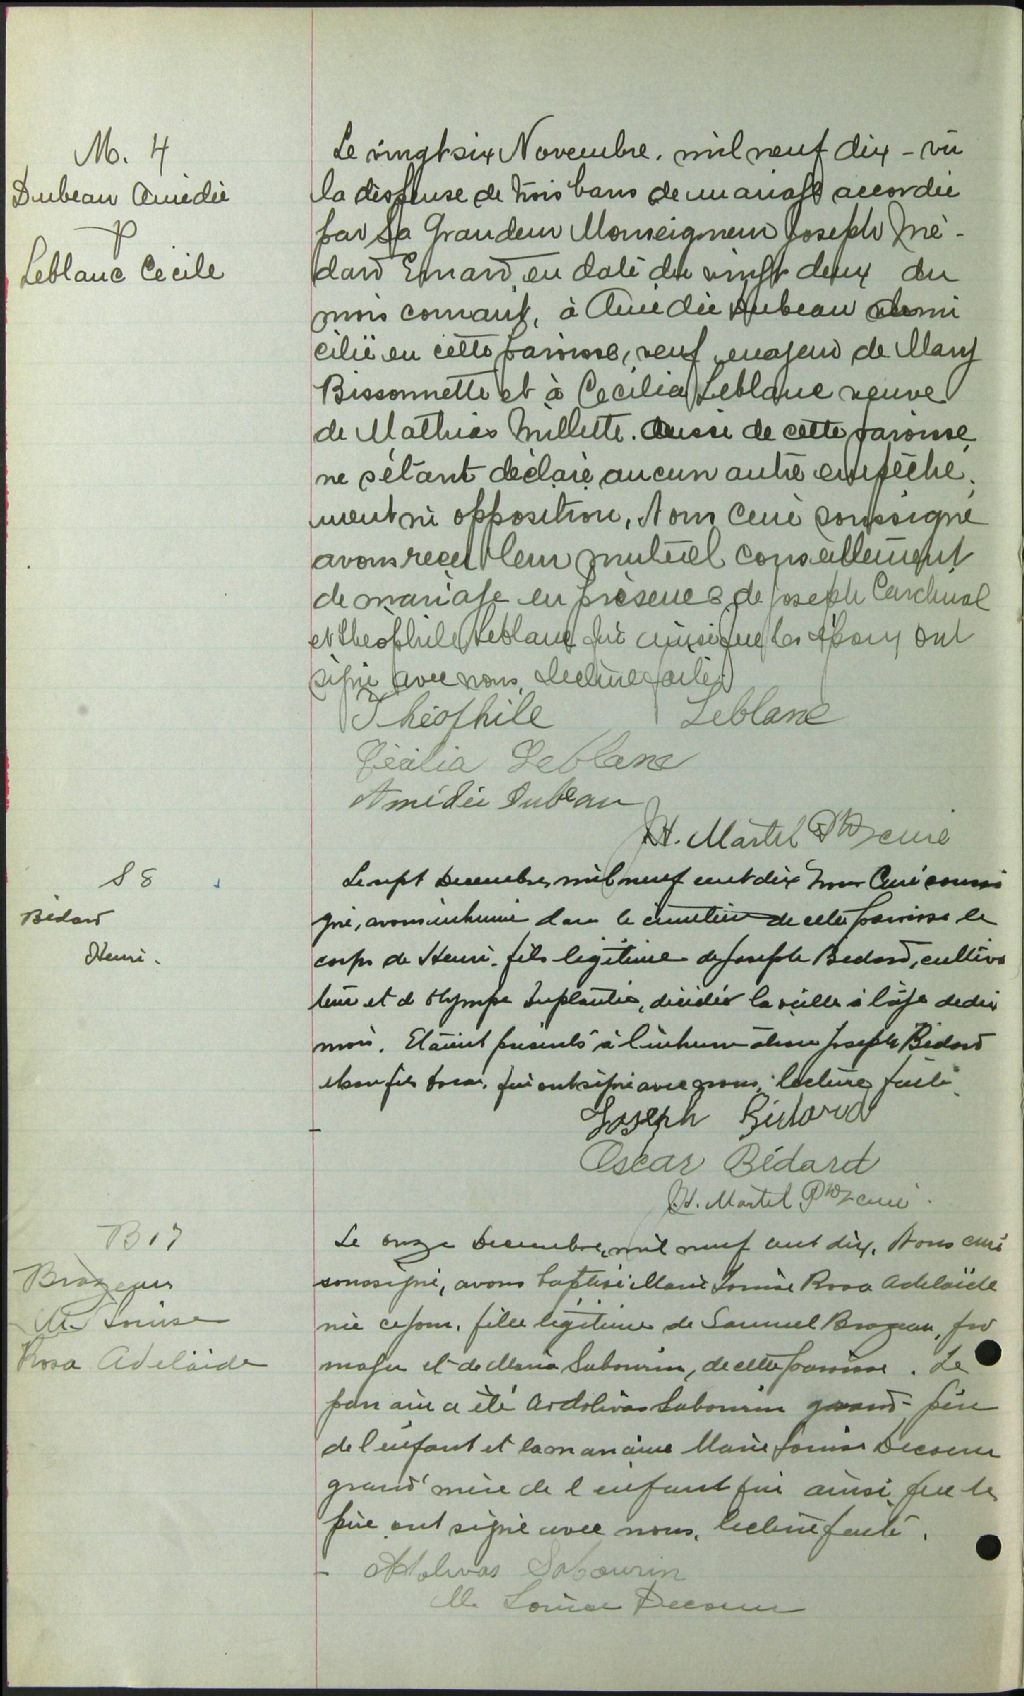 M. 4
Dubeau Amédée
&
Leblanc Cecile
Le vingt six Novembre. mil neuf dix - vu
la dispense de trois bans de mariage accordée
par Sa Grandeur Monseigneur Joseph Mé-
dard Emard, en date du vingt deux du
mois courant, à Amédée Dubeau domi
cilié en cette paroisse, veuf majeur de Mary
Bissonnette et à Cecilia Leblanc veuve
de Mathias Millette. Aussi de cette paroisse
ne s'étant déclaré aucun autre empêche
ment ni opposition, Nous Curé soussigné
avons reçu leur mutuel consentement
de mariage en présence de Joseph Cardinal
et Théophile Leblanc qui ainsi que les époux ont
signé avec nous, lecture faite.
Théophile Leblanc
Cécilia Leblanc
Amédée Dubeau
J.H. Martel Ptre curé
S 8
Bédard
Henri.
Le sept Decembre, mil neuf cent dix Nous Curé soussi
gné, avons inhumé dans le cimetière de cette paroisse le
corps de Henri. fils légitime de Joseph Bedard, cultiva
teur et d'Olympe, décédé la veille à l'âge de dix
mois. Etaient présents à l'inhumation Joseph Bédard
et son fils Oscar. qui ont signé avec nous, lecture faite.
Joseph Bédard
Oscar Bédard
J.H. Martel Ptre curé.
B 17
Brazeau
M. Louise
Rosa Adelaïde
Le onze Decembre, mil neuf cent dix. Nous curé
soussigné, avons baptisé Marie Louise Rosa Adelaïde
née ce jour. fille légitime de Samuel Brazeau, fro
mager et de Maria Sabourin, de cette paroisse. Le
parrain a été Adolivas Sabourin grand-père
de l'enfant et la marraine Marie Louise Decoeur
grand'mère de l'enfant qui ainsi que le
père ont signé avec nous. lecture faite.
Adolivas Sabourin
M. Louise Decoeur